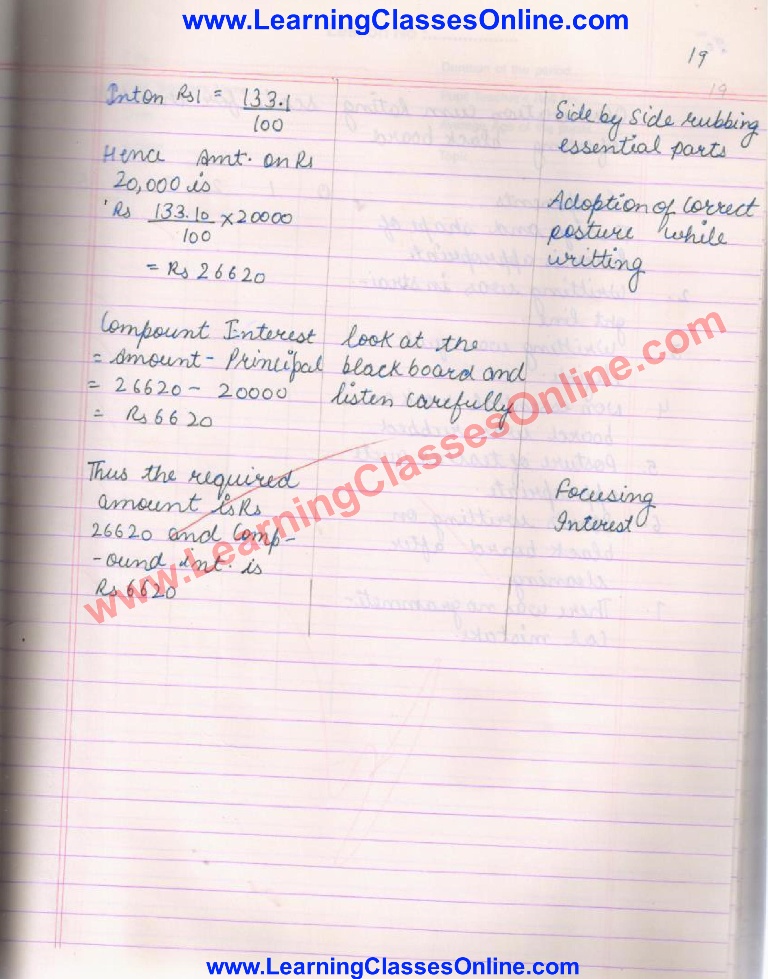 www.LearningClassesOnline.com
19
Int on Rs 1 = 133.1
100
Hence Amt. on Rs
20,000 is
Rs 133.10 × 20000
100
= Rs 26620
Compount Interest
= Amount - Principal
= 26620 - 20000
= Rs 6620
Thus the required
amount is Rs
26620 and Comp-
-ound Int. is
Rs 6620
look at the
black board and
listen carefully
Side by side rubbing
essential parts
Adoption of correct
posture while
writting
Focusing
Interest
www.LearningClassesOnline.com
www.LearningClassesOnline.com